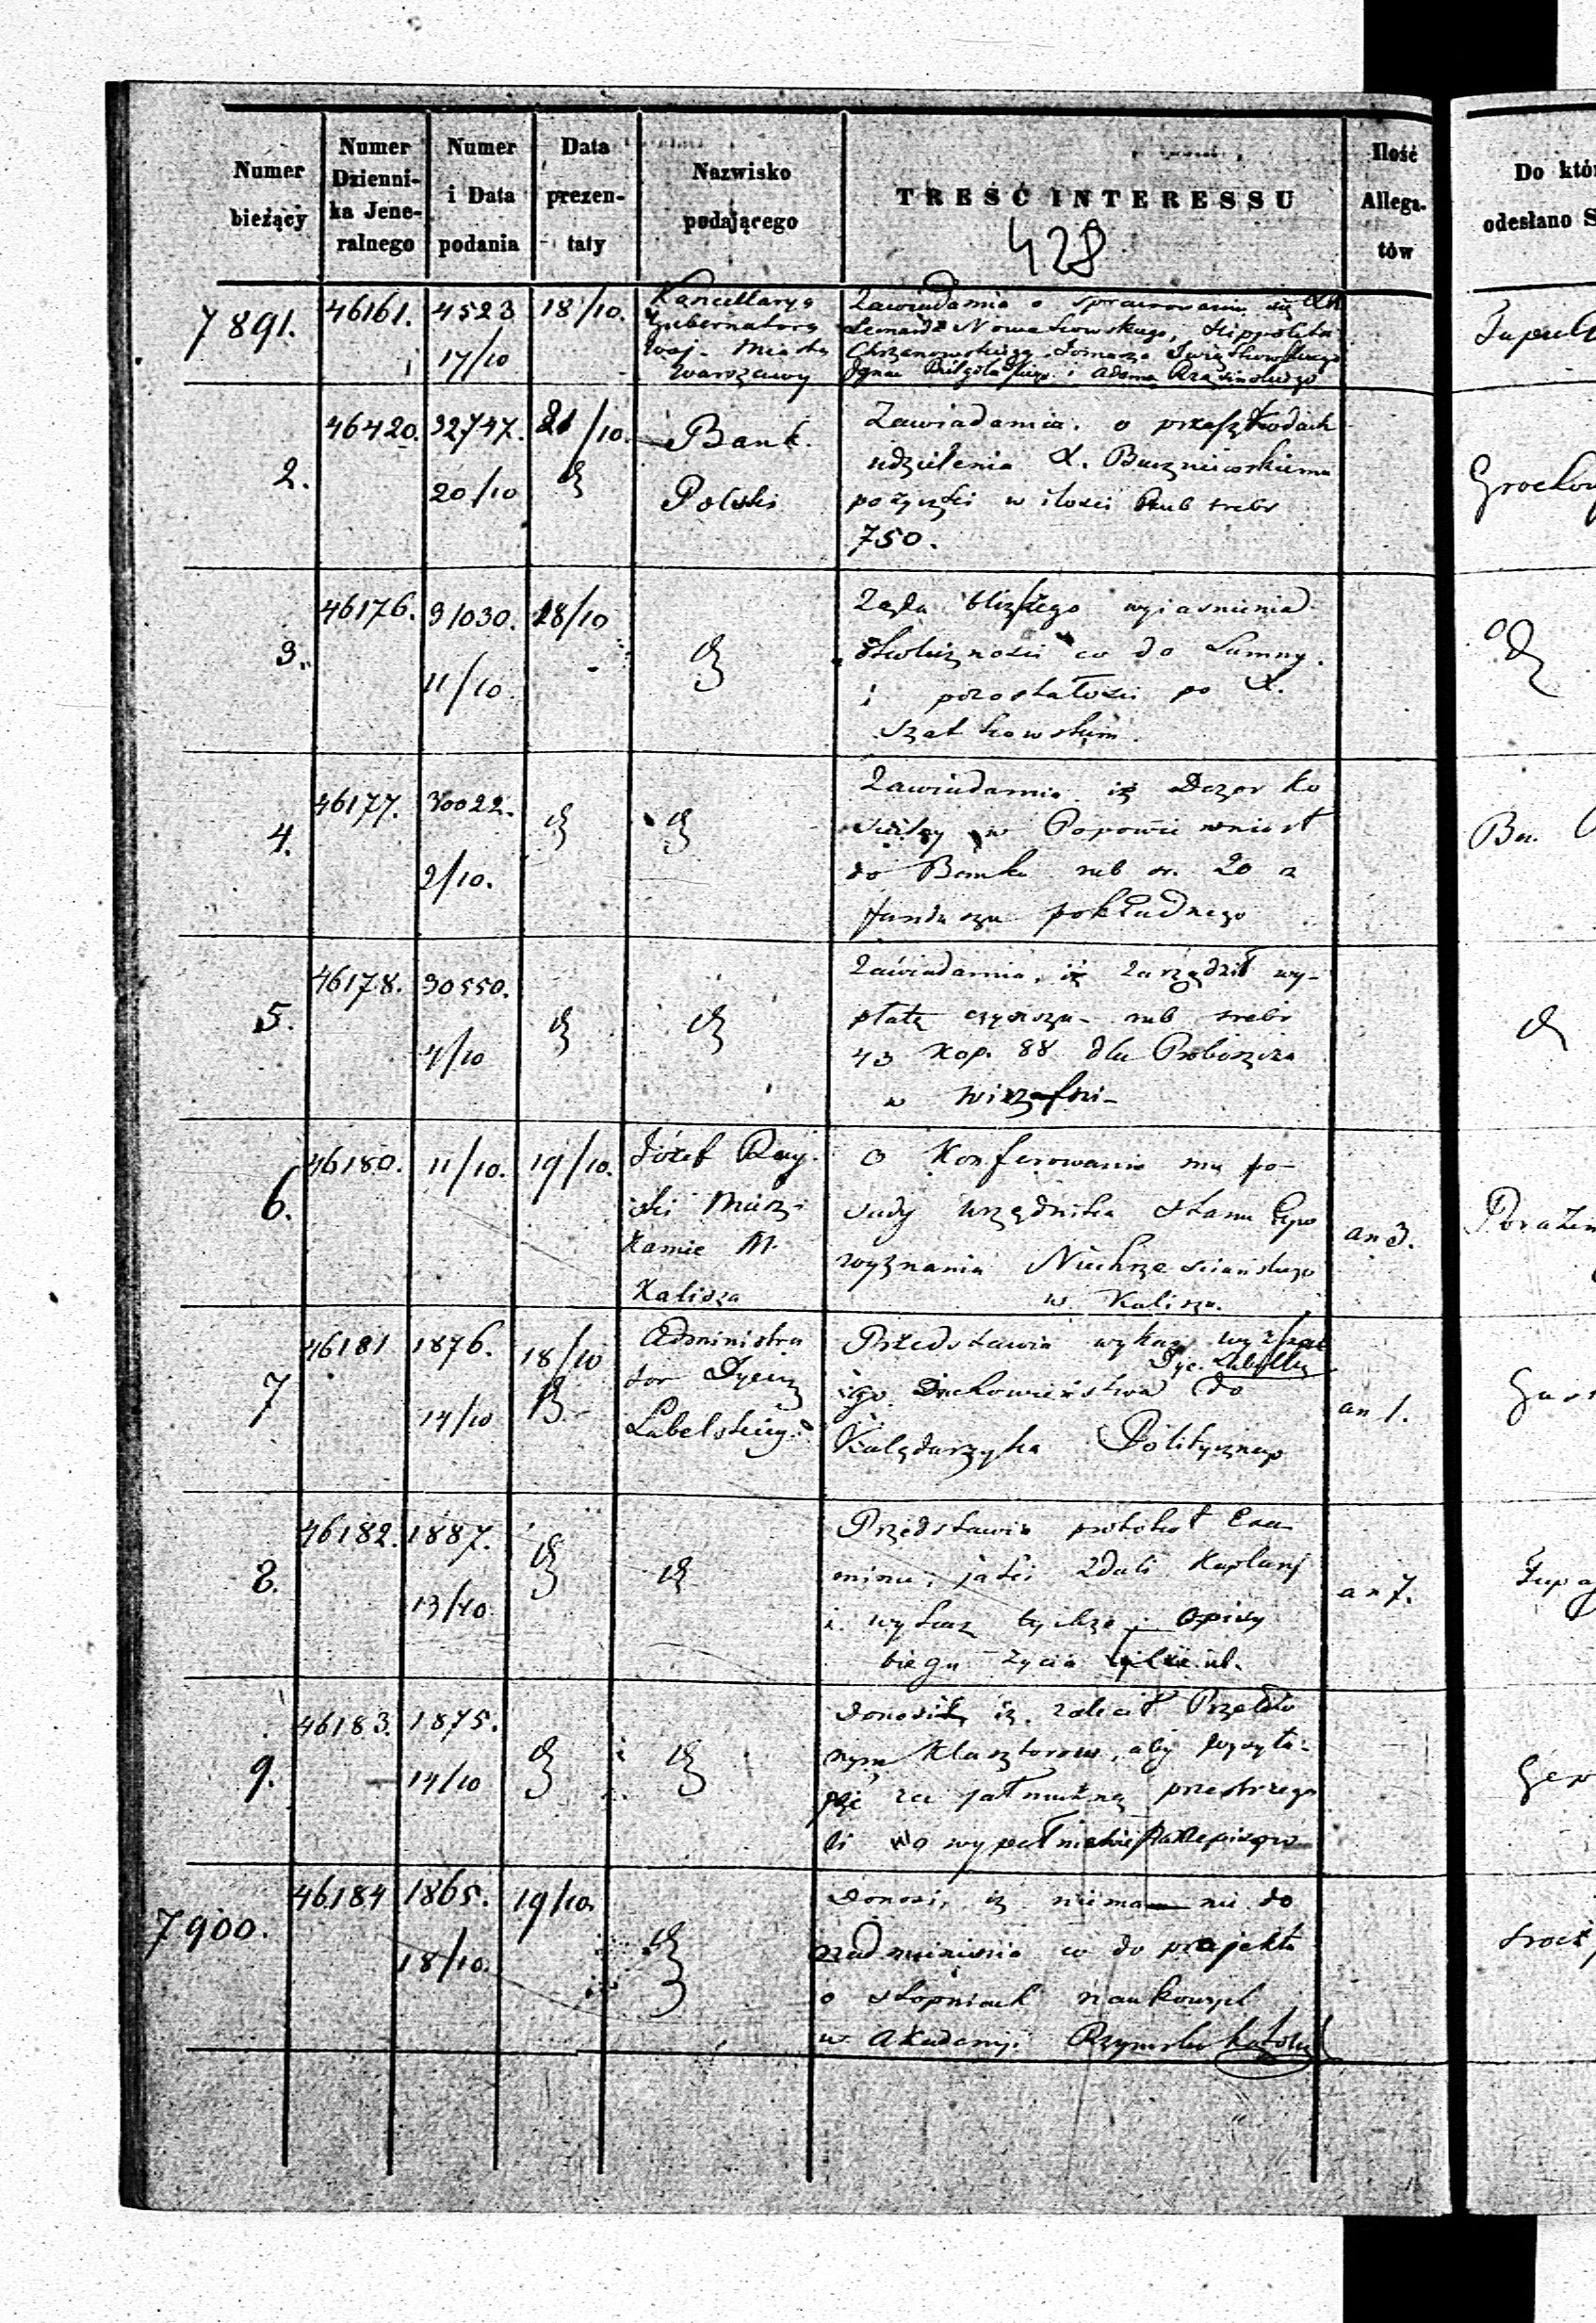 Numer bieżący
Numer Dzienni- ka Jene- ralnego
Numer i Data podania
Data prezen- taty
Nazwisko podającego
TREŚĆ INTERESSU
428
Ilość Allega- tów
Do któ
odesłano S
7891.
46161.
4523
17/10
18/10.
Kancellarya
Gubernatora
Woj. Miasta
Warszawy
Zawiadamia o sprawowaniu się XX
Leonarda Nowakowskiego, Hippolita
Chrzanowskiego, Tomasza Świątkowskiego
Ignac i Adama
2.
46420.
32747.
20/10
21/10.
Bank
Polski
Zawiadamia o przeszkodach
udzielenia X.
pożyczki w ilości Rub srebr
750.
Grochow
3.
46176.
31030.
11/10.
18/10
Żąda bliższego wyiasnienia
okoliczności co do Summy
i pozostałości po X.
Szatkowskim.
4.
46177.
30022.
2/10.
Zawiadamia iż Dozor ko
ścielny w Popowie wniosł
do Banku rub sr. 20 z
funduszu pokładnego
5.
46178.
30550.
4/10
Zawiadamia, iż zarządził wy-
płatę czynszu rub srebr
43 kop. 88 dla Proboszcza
w
6.
46180.
11/10.
19/10.
Józef
ski Miesz-
kaniec M.
Kalisza
O konferowanie mu po-
sady urzędnika stanu Cyw
wyznania Niechrześciańskiego
w Kaliszu.
an 3.
7
46181
1876.
14/10
18/10
Administra
tor Dyecezy
Lubelskiey
Przedstawia wykaz wyższe
Dyec. Lubelskiey
igo Duchowieństwa do
Kalędarzyka Politycznego
an 1.
8.
46182.
1887.
13/10
Przedstawia protokoł Exa
minu, jaki zdali Kapłani
i wykaz tychże i opisy
biegu życia
an 7.
9.
46183.
1875.
14/10
Donosi, iż zalecił Przeło
nym Klasztorow, aby
za jałmużną przestrzega
li wypełnienie Przepisow
7900.
46184
1865.
18/10.
19/10.
Donosi, iż niema nic do
nadmienienia co do projektu
o stopniach naukowych
w Akademji Rzymsko Katolick